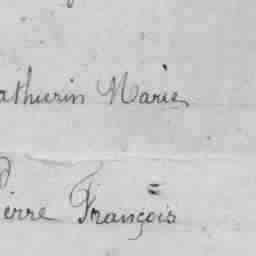 athurin Marie
Pierre François